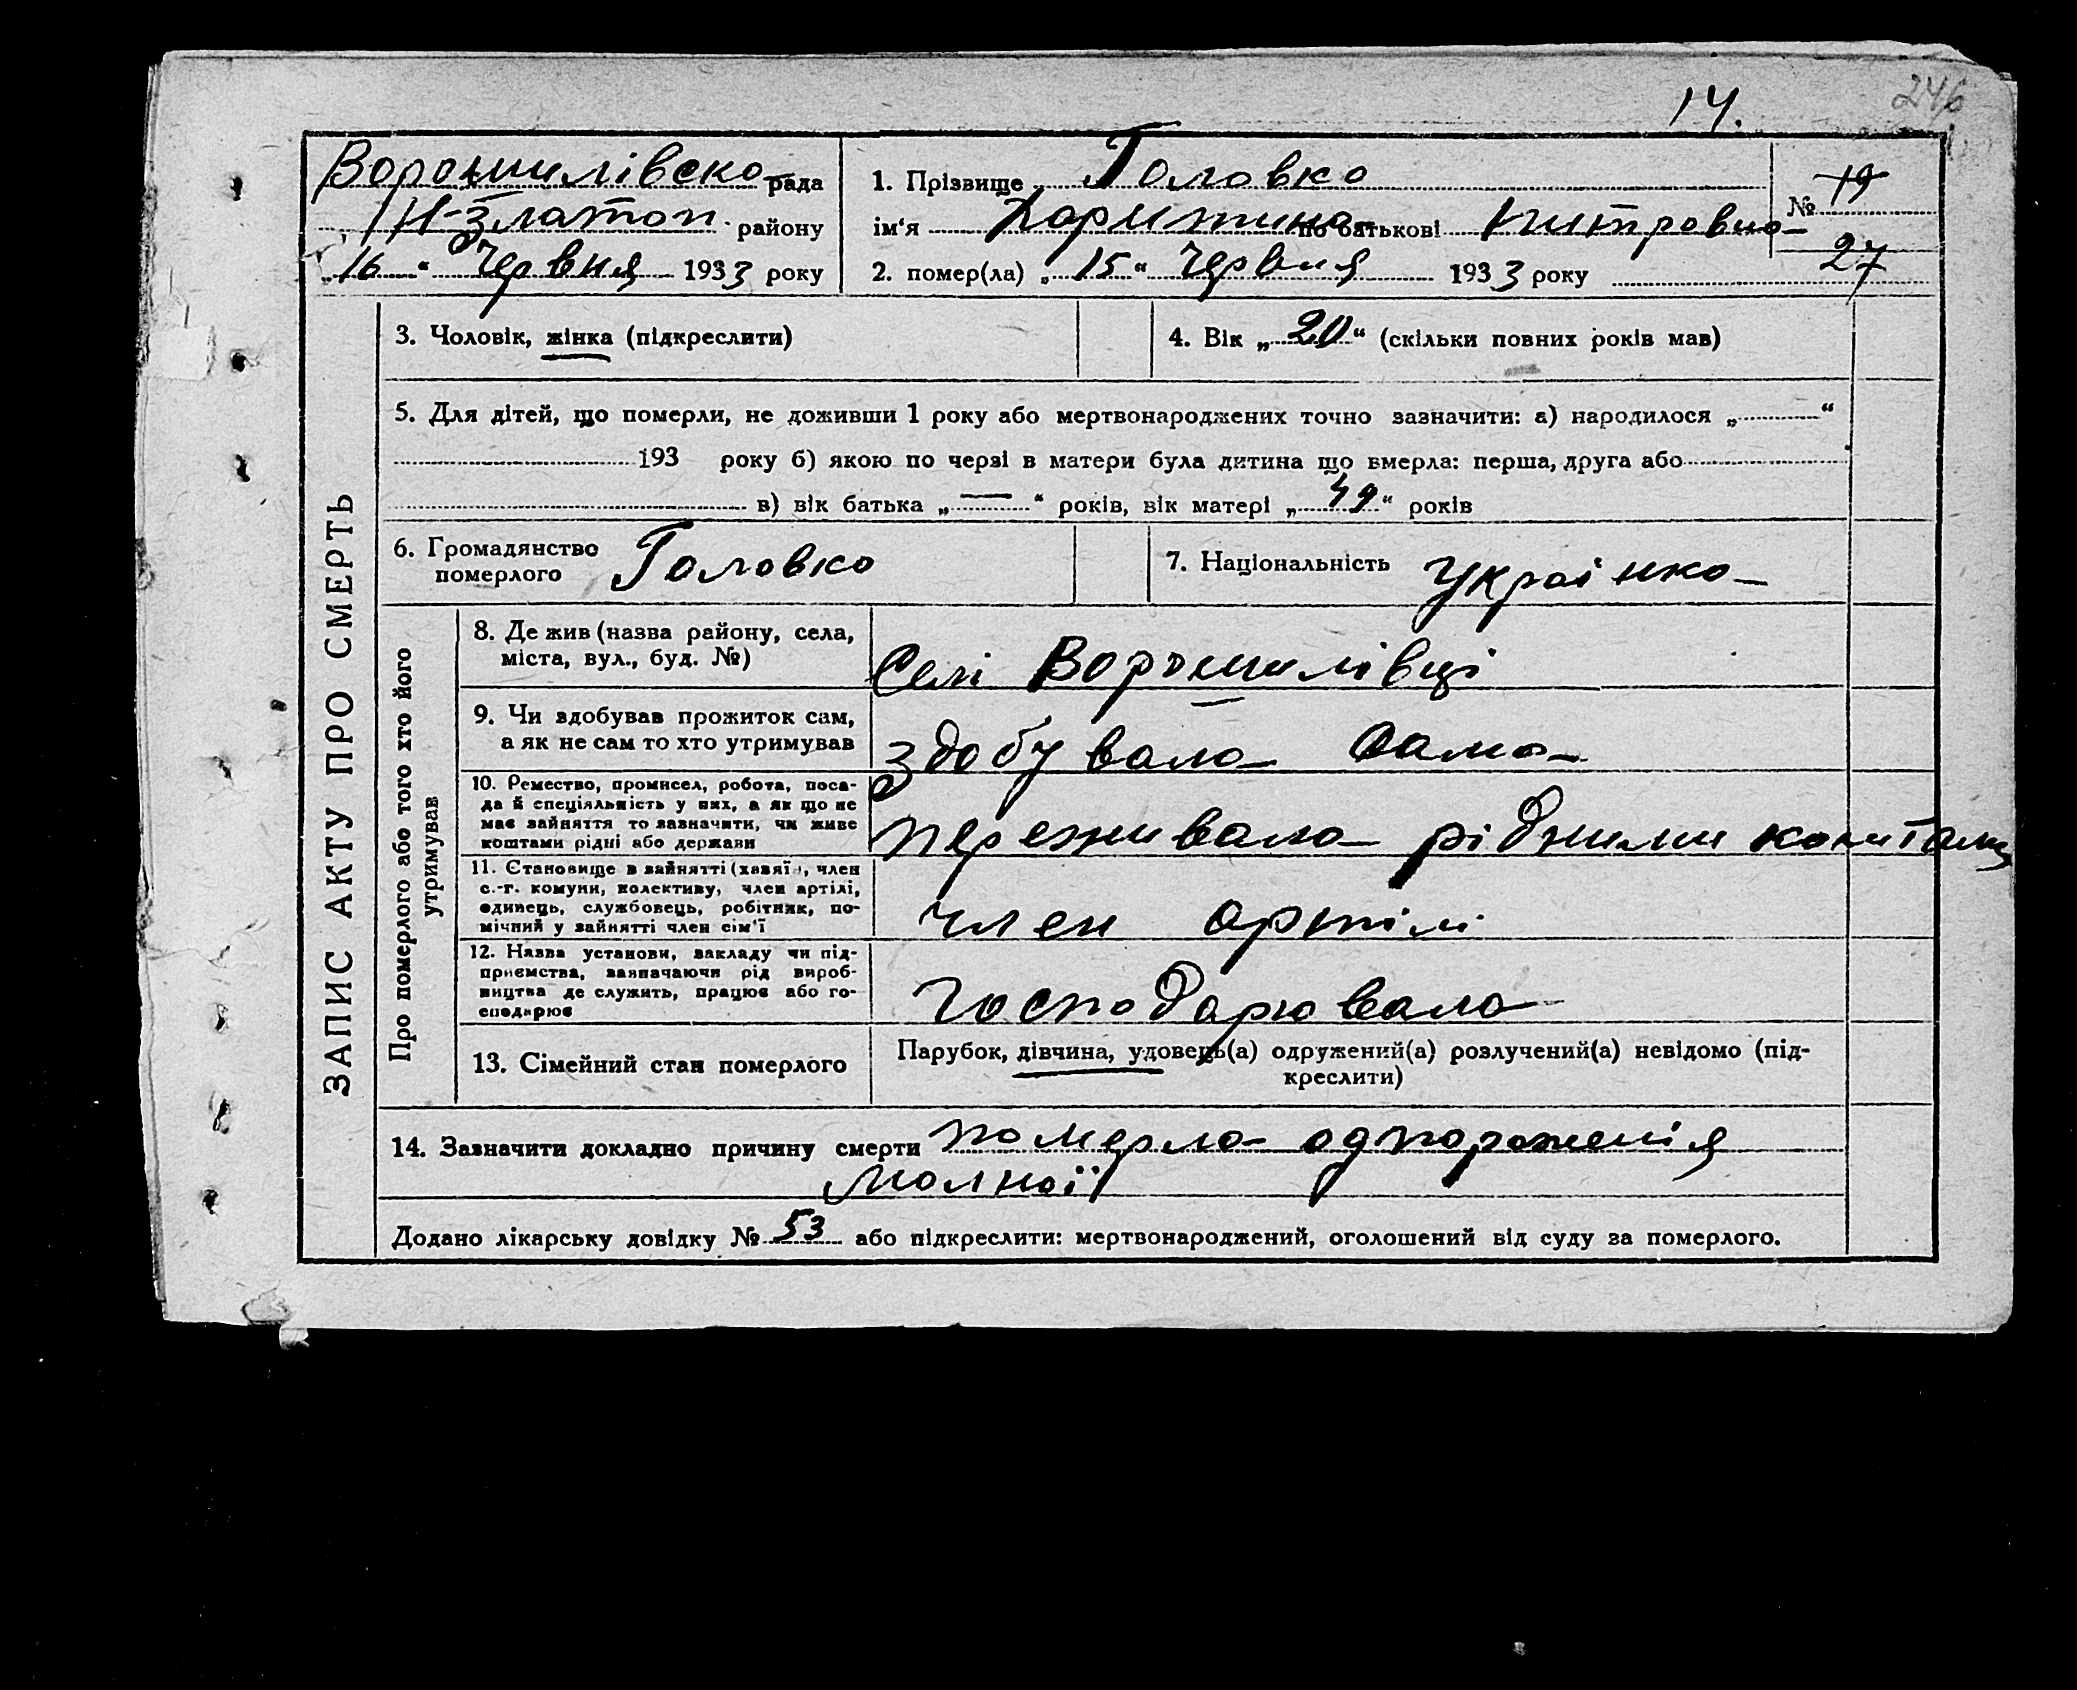 246
14.
Ворошилівсько рада
Н-Златоп. району
„16“ Червня 1933 року
1. Прізвище Головко
ім‘я Харитина по батькові
2. помер(ла) „15“ Червня 1933 року
№ 19
27
ЗАПИС АКТУ ПРО СМЕРТЬ
3. Чоловік, жінка (підкреслити)
4. Вік „20“ (скільки повних років мав)
5. Для дітей, що померли, не доживши 1 року або мертвонароджених точно зазначити: а) народилося „ “
193 року б) якою по черзі в матери була дитина що вмерла: перша, друга або
в) вік батька „—“ років, вік матері „49“ років
6. Громадянство
померлого Головко
7. Національність Українка
Про померлого або того хто його
утримував
8. Де жив (назва району, села,
міста, вул., буд. №)
Селі Ворошилівці
9. Чи здобував прожиток сам,
а як не сам то хто утримував
здобувала сама
10. Ремество, промисел, робота, поса-
да й спеціяльність у них, а як що не
має зайняття то зазначити, чи живе
коштами рідні або держави
переживала рідними коштами
11. Становище в зайнятті (хазяїн, член
с.-г. комуни, колективу, член артілі,
одинець, службовець, робітник, по-
мічний у зайнятті член сім‘ї
член артілі
12. Назва установи, закладу чи під-
приємства, зазначаючи рід вироб-
ництва де служить, працює або го-
сподарює
господарювала
13. Сімейний стан померлого
Парубок, дівчина, удовець(а) одружений(а) розлучений(а) невідомо (під-
креслити)
14. Зазначити докладно причину смерти померла одпораженія
молнії
Додано лікарську довідку № 53 або підкреслити: мертвонароджений, оголошений від суду за померлого.